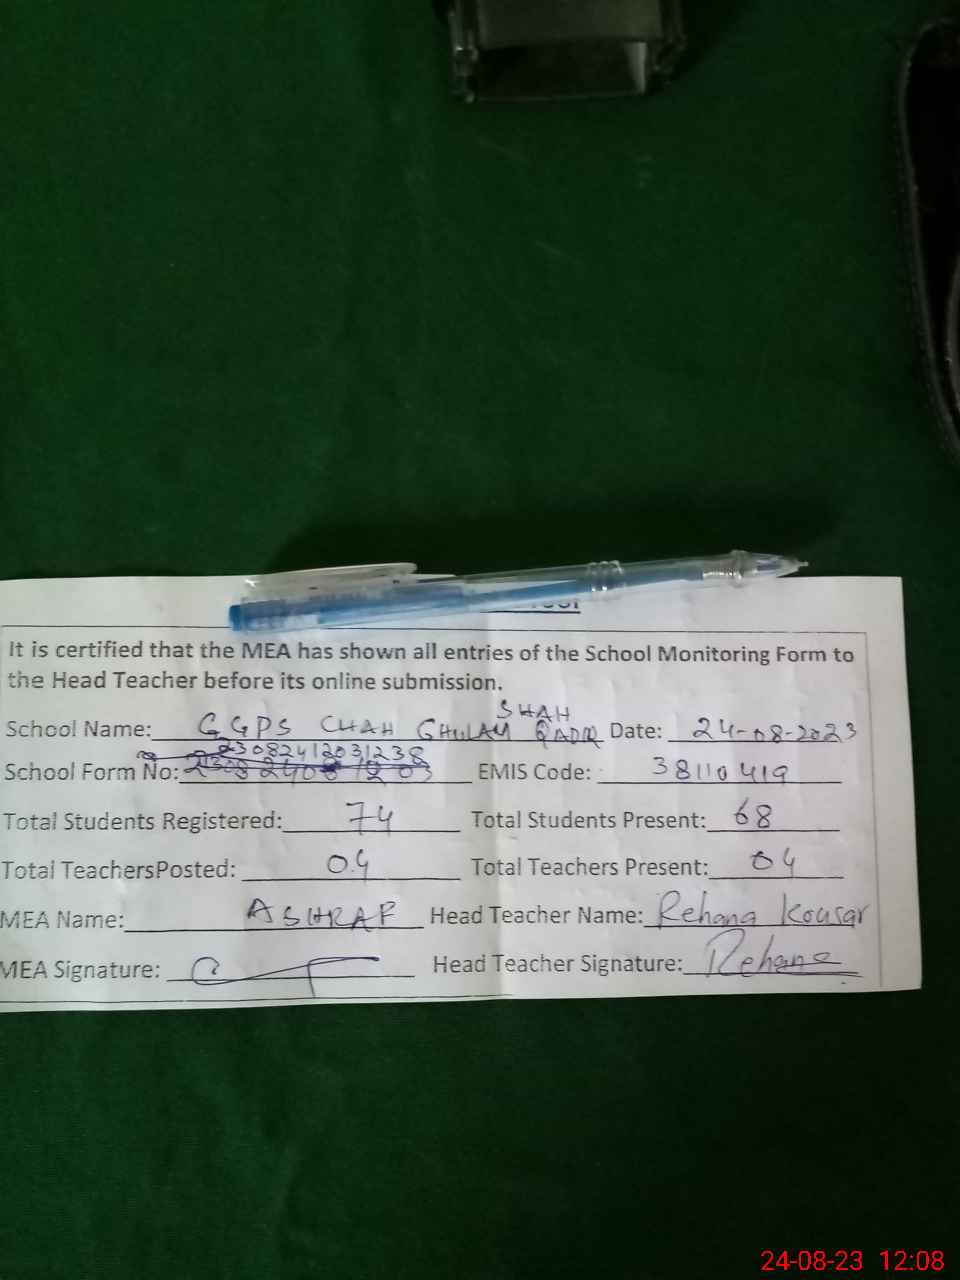 It is certified that the MEA has shown all entries of the School Monitoring Form to
the Head Teacher before its online submission.
SHAH
School Name: GGPS CHAH GHULAM QADIR Date: 24-08-2023
23082412031238
School Form No: EMIS Code: 38110419
Total Students Registered: 74 Total Students Present: 68
Total TeachersPosted: 04 Total Teachers Present: 04
MEA Name: ASHRAF Head Teacher Name: Rehana Kousar
MEA Signature: Head Teacher Signature: Rehana
24-08-23 12:08